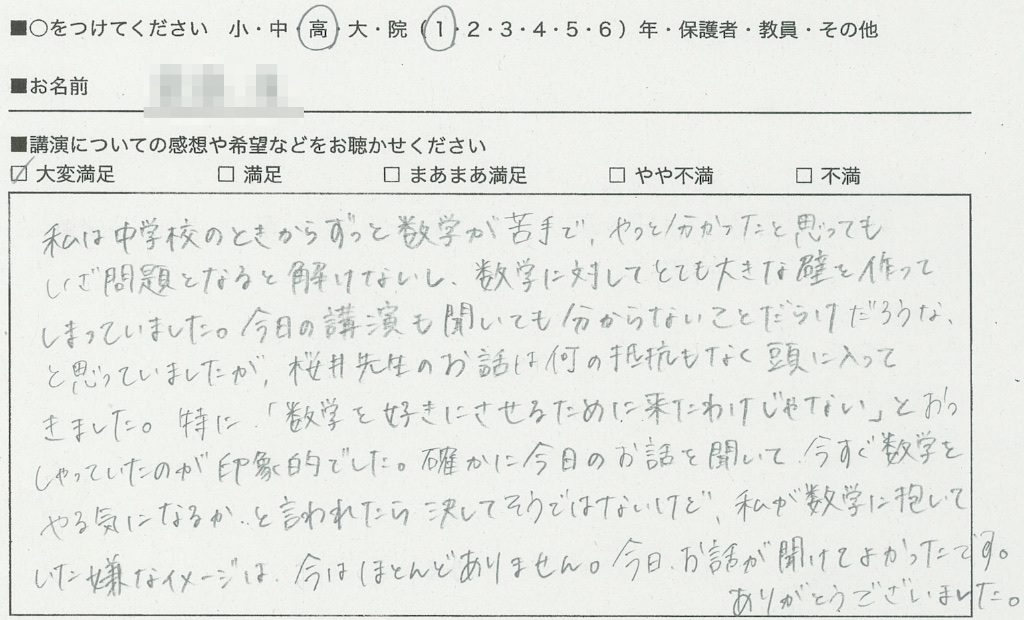 ■○をつけてください 小・中・高・大・院（1・2・3・4・5・6）年・保護者・教員・その他
■お名前
■講演についての感想や希望などをお聴かせください
☑ 大変満足 □ 満足 □ まあまあ満足 □ やや不満 □ 不満
私は中学校のときからずっと数学が苦手で、やっと分かったと思っても
いざ問題となると解けないし、数学に対してとても大きな壁を作って
しまっていました。今日の講演も聞いても分からないことだらけだろうな、
と思っていましたが、桜井先生のお話は何の抵抗もなく頭に入って
きました。特に、「数学を好きにさせるために来たわけじゃない」とおっ
しゃっていたのが印象的でした。確かに今日のお話を聞いて、今すぐ数学を
やる気になるか、と言われたら決してそうではないけど、私が数学に抱いて
いた嫌なイメージは、今はほとんどありません。今日、お話が聞けてよかったです。
ありがとうございました。